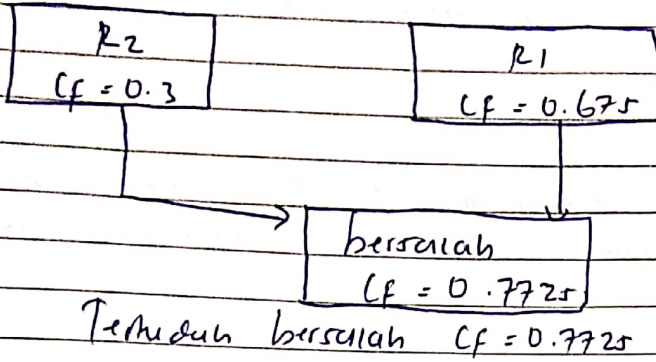 R2
Cf = 0.3
R1
Cf = 0.675
bersalah
Cf = 0.7725
Tertuduh bersalah Cf = 0.7725